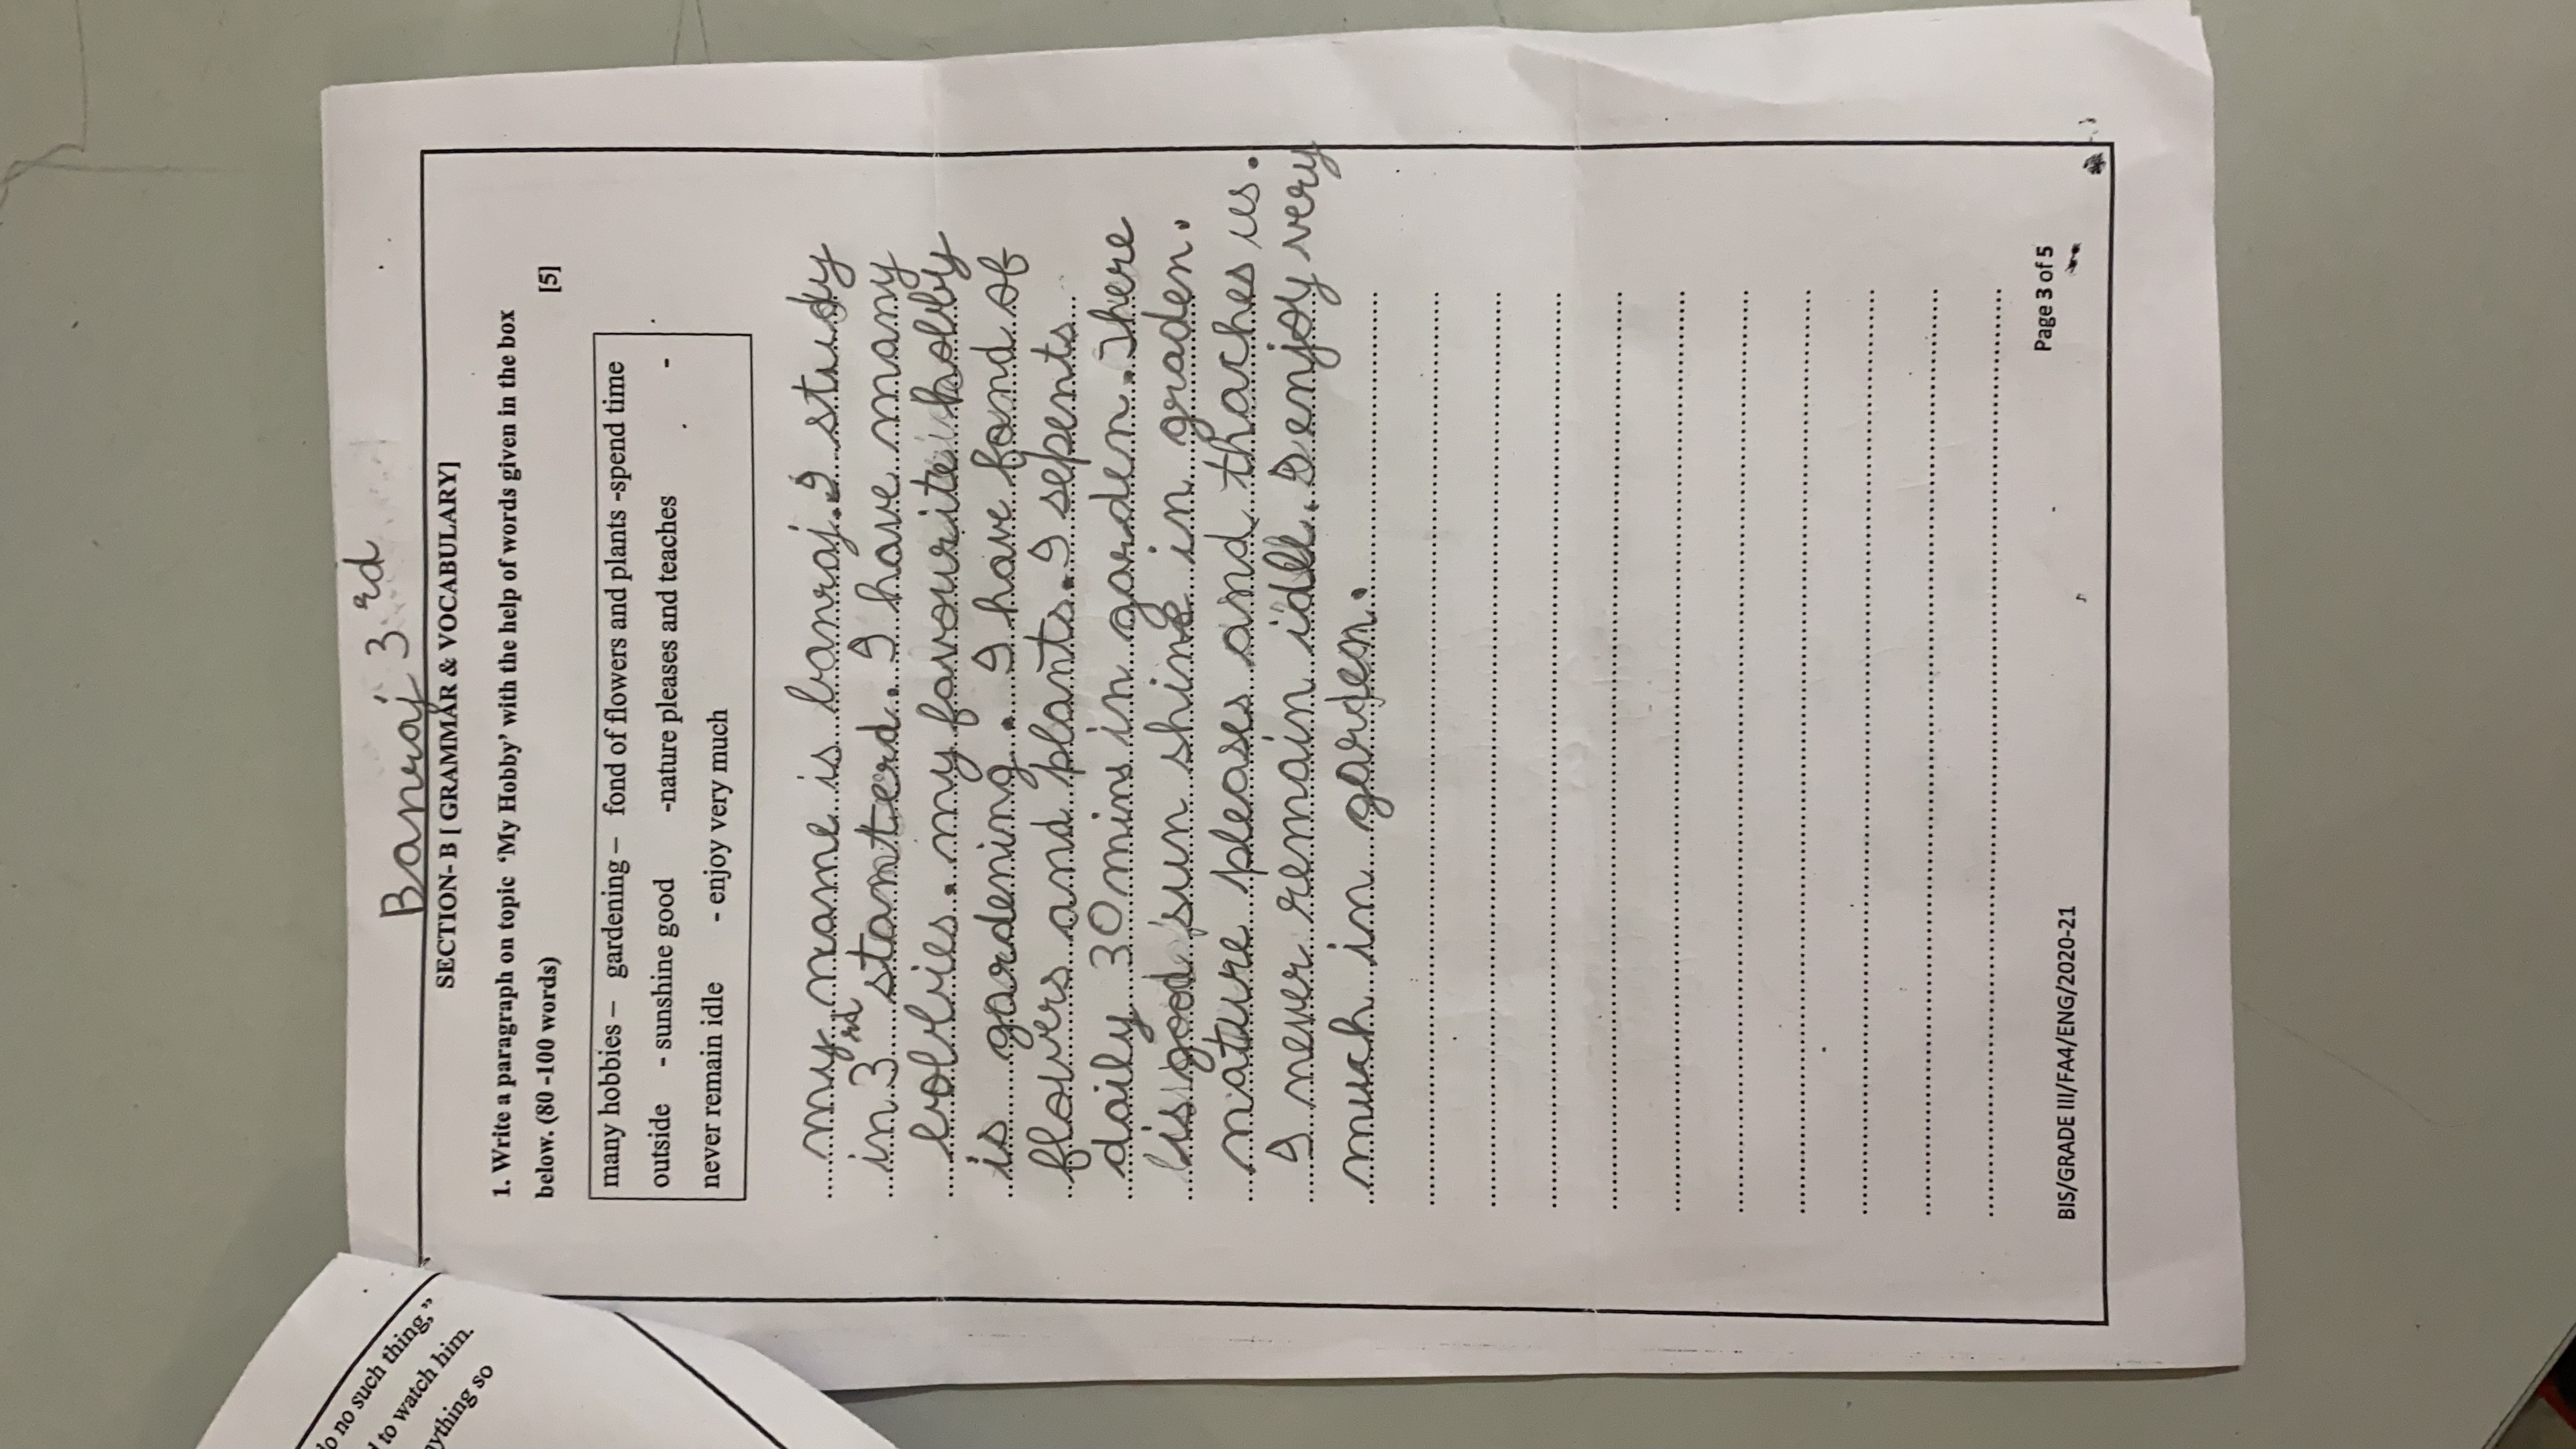 o no such thing,”
to watch him.
ything so
Banraj 3rd
SECTION- B [ GRAMMAR & VOCABULARY]
1. Write a paragraph on topic ‘My Hobby’ with the help of words given in the box
below. (80 -100 words) [5]
many hobbies – gardening – fond of flowers and plants -spend time
outside - sunshine good -nature pleases and teaches -
never remain idle - enjoy very much
my name is banraj. I study
in 3rd stamterd. I have many
bobbies. my favourite hobby
is gardening. I have fond of
flowers and plants. I sepents
daily 30 mins in garden. There
is good sun shine in graden.
nature pleases and thaches us.
I never remain idll. I enjoy very
much in garden.
Page 3 of 5
BIS/GRADE III/FA4/ENG/2020-21